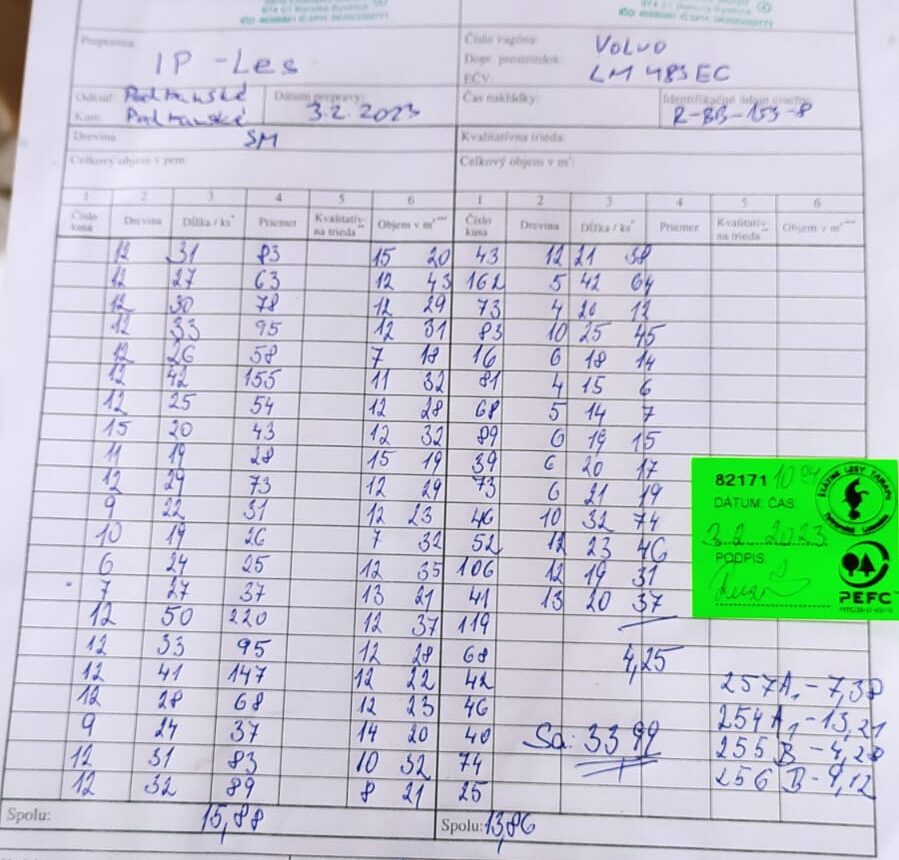 Prepravca:
IP - Les
Číslo vagónu:
Dopr. prostriedok:
EČV:
Volvo
LM 483 EC
Odkiaľ: Podtanské
Kam: Podtanské
Dátum prepravy:
3.2.2023
Čas nakládky:
R-BB-153-8
Drevina: SM
Kvalitatívna trieda:
Celkový objem v prm
Celkový objem v m³:
1 2 3 4 5 6 1 2 3 4 5 6
Číslo kusa Drevina Dĺžka / ks* Priemer Kvalitatív- na trieda** Objem v m³*** Číslo kusa Drevina Dĺžka / ks* Priemer Kvalitatív- na trieda** Objem v m³***
12 31 83 15 20 43 12 21 38
12 27 63 12 43 162 5 42 64
12 30 78 12 29 73 4 20 12
12 33 95 12 31 83 10 25 45
12 26 58 7 18 16 6 18 14
12 42 155 11 32 81 4 15 6
12 25 54 12 28 68 5 14 7
15 20 43 12 32 89 6 19 15
11 19 28 15 19 39 6 20 17
12 29 73 12 29 73 6 21 19
9 22 31 12 23 46 10 32 74
10 19 26 7 32 52 12 23 46
6 24 25 12 35 106 12 19 31
7 27 37 13 21 41 13 20 37
12 50 220 12 37 119
12 33 95 12 28 68 4,25
12 41 147 12 22 42
12 28 68 12 23 46
9 24 37 14 20 40
12 31 83 10 32 74
12 32 89 8 21 25
Sa: 33,99
257A1 - 7,38
254A1 - 13,21
255B - 4,28
256B - 9,12
Spolu: 15,88
Spolu: 13,86
82171
DÁTUM, ČAS:
3.2.2023
PODPIS
PEFC